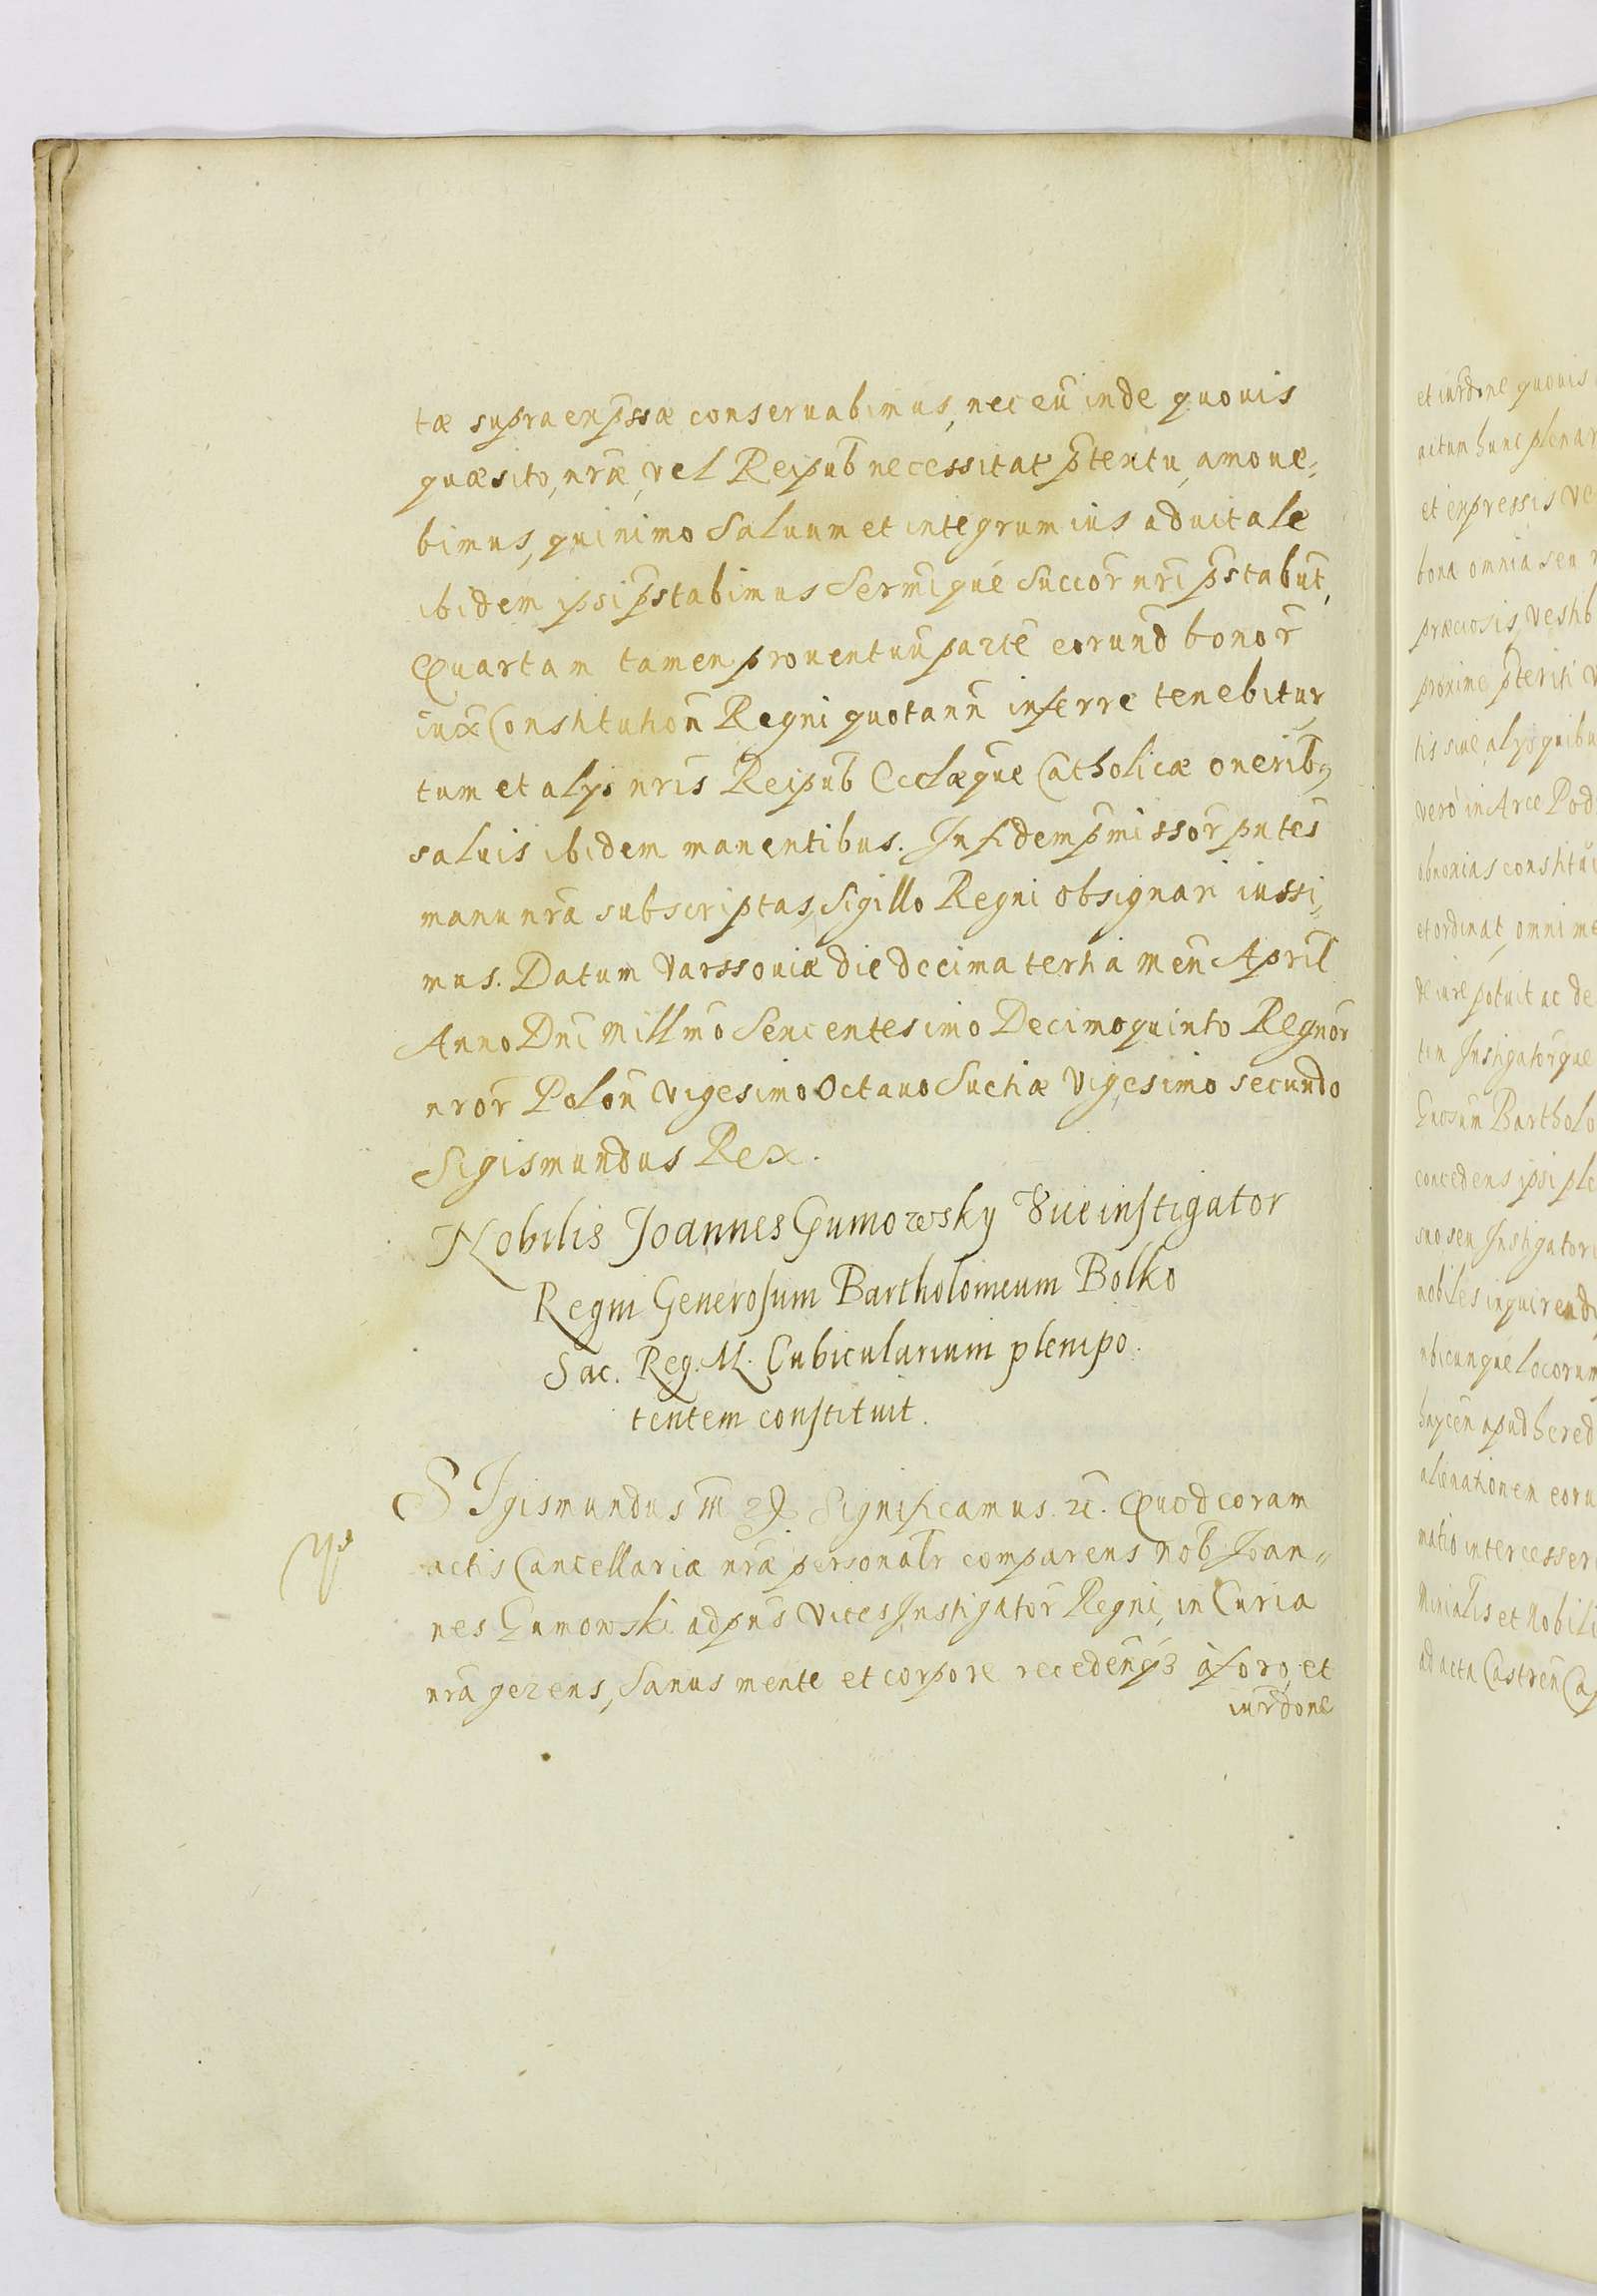 tæ supra enp̄ssæ conseruabimus, nec eū inde quouis
quæsito, nr̄æ, vel Reipub̄ necessitat p̄tentu, amoue-
bimus, quinimo Saluum et integrum ius aduitale
ibidem ipsi p̄stabimus Sermīque Succor̄ nrī p̄stabūt,
Quartam tamen prouentuū partē eorund̄ bonor̄
iux̄ Constitution̄ Regni quotann̄ inferre tenebitur,
tum et alys nrīs Reipub̄ Ecclæque Catholicæ onerib9
saluis ibidem manentibus. In fidem p̄missor̄ pn̄tes
manu nrā subscriptas, Sigillo Regni obsignari iussi-
mus. Datum Varssouiæ die decima tertia men̄ April̄
Anno Dnī Millmō Sencentesimo Decimoquinto Regnor̄
nror̄ Polon̄ Vigesimo Octauo Suetiæ Vigesimo secundo
Sigismundus Rex.
Nobilis Joannes Gumowsky Viceinstigator
Regni Generosum Bartholomeum Bolko
Sac. Reg. M. Cubicularium plenipo.
tentem constituit.
SIgismundus III Significamus. Quod coram
actis Cancellariæ nrǣ personalr̄ comparens Nob̄ Joan-
nes Gumowski ad pn̄s Vices Instigator̄ Regni, in Curia
nrā gerens, Sanus mente et corpore recedenq3 à foro, et
iurdōne
et iurdōne quouis
actum hunc plenar
et expressis ve
bona omnia seu
præciosis, vestib
proxime p̄teriti
tis siue alys quibu
vero in Arce Pod
obnoxias constitu
et ordinat, omni me
de iure potuit ac de
Instigator̄que
Gnosum̄ Bartholo
concedens ipsi ple
suo seu Instigatori
nobiles inquirendi
ubicunque locorum
apud hered
alienationem eoru
intercesser
et Nobili
ad acta Castren̄ Ca